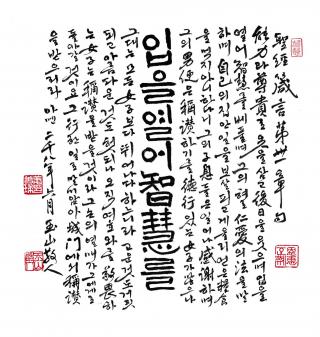 聖經 箴言 第卅一章
能力과 尊貴로 옷을 삼고 後日을 웃으며 입을
열어 智慧를 베풀며 그의 혀로 仁愛의 法을 말
하며 自己의 집안일을 보살피고 게을리 얻은 糧食
을 먹지 아니하나니 그의 子息들은 일어나 感謝하며
그의 男便은 稱讚하기를 德行 있는 女子가 많으나
입을열어智慧를
그대는 모든 女子보다 뛰어나다 하느니라 고운 것도 거짓
되고 아름다운 것도 헛되나 오직 여호와를 敬畏하
는 女子는 稱讚을 받을 것이라 그 손의 열매가 그에게
돌아갈 것이요 그 행한 일을 말미암아 城門에서 稱讚
을 받으리라 아멘 二千八年 月 玉山散人